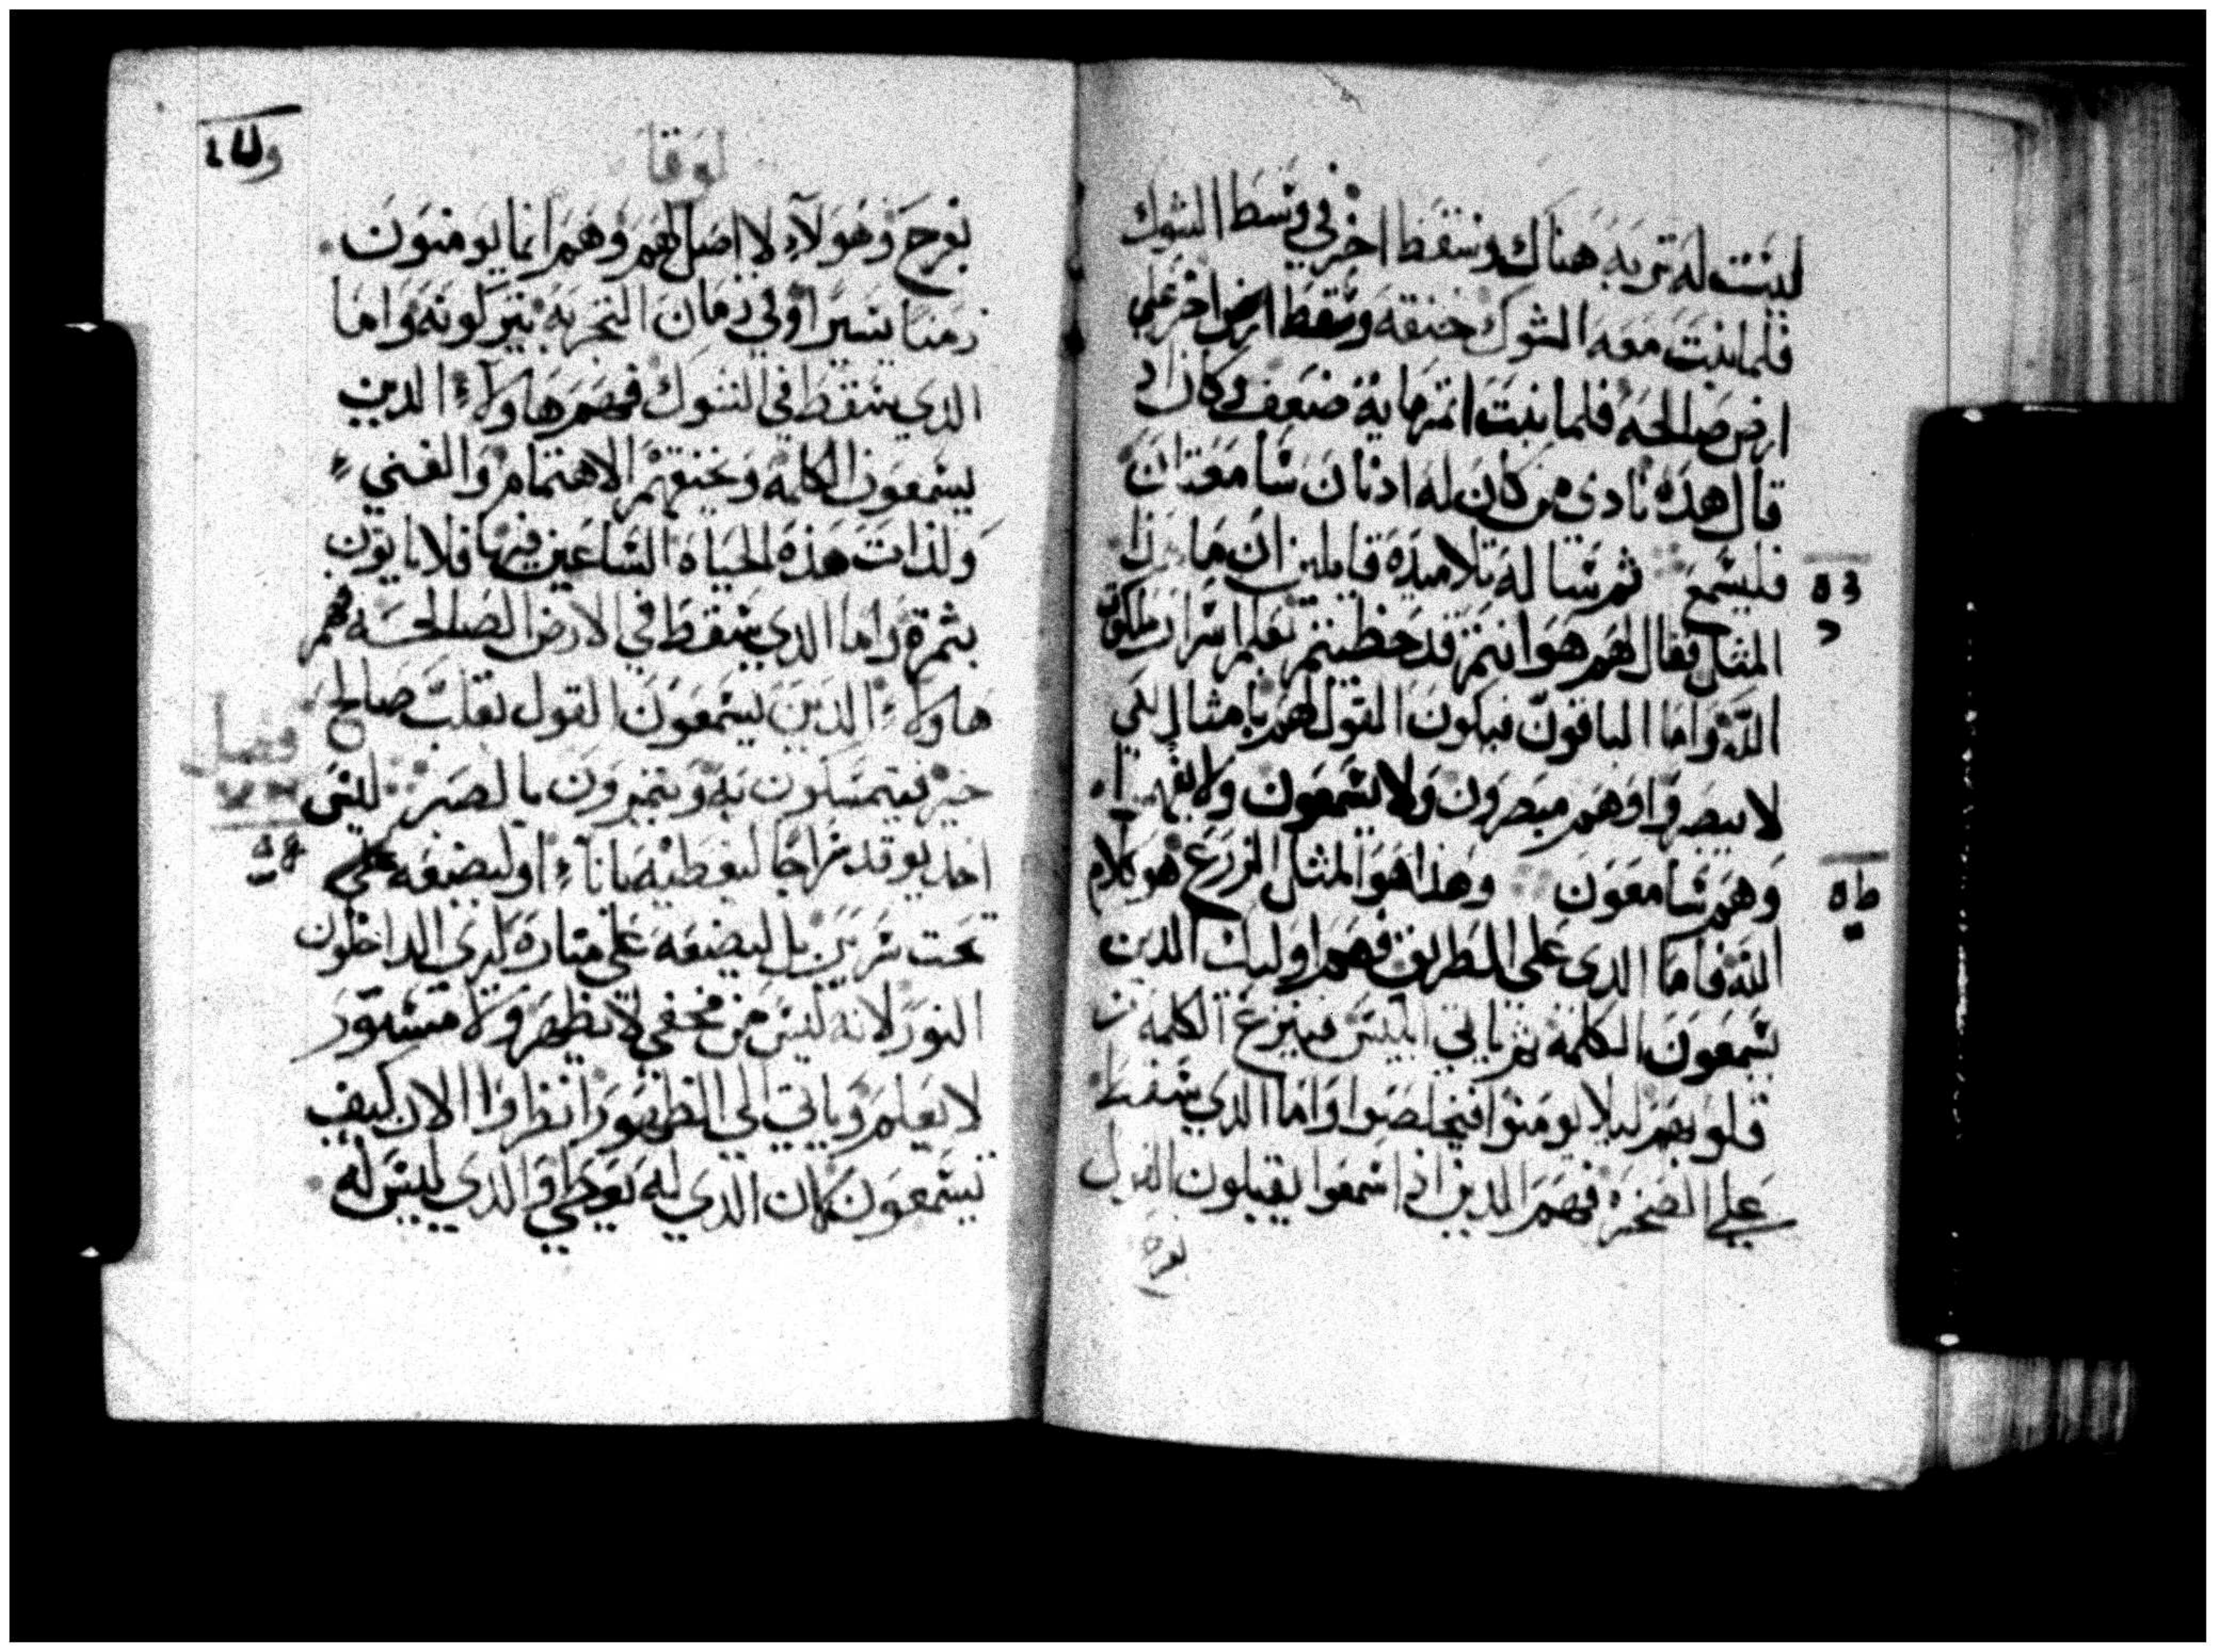 ليست له تربه هناك وسقط اخر في وسط الشوك
فلما نبت معه الشوك خنقه وسقط اخر علي
ارض صالحه فلما نبت اثمر مايه ضعف وكان اد
قال هده نادي من كان له ادنان سامعتان
فليسمع ثم ساله تلاميده قايلين ان ما
المثل فقال لهم هو انتم قد حظيتم تعلم اسرار ملكوت
الله واما الباقون فيكون القول لهم بامثال لكي
لا يبصروا وهم مبصرون ولا يسمعون ولا
وهم سامعون وهذا هو المثل الزرع هو كلام
الله فاما الدي علي الطريق فهم اوليك الدين
يسمعون الكلمه ثم ياتي ابليس فينزع الكلمه
قلوبهم ليلا يومنوا فيخلصوا واما الدي سقط
علي الصخره فهم الدين اذا سمعوا يقبلون القول
بفرح
لوقا
بفرح وهولاء لا اصل لهم وهم انما يومنون
زمنا يسيرا وفي زمان التجربه يتركونه واما
الدي سقط في الشوك فهم هاولاء الدين
يسمعون الكلمه وتخنقهم الاهتمام والغني
ولذات هذه الحياه الساعين فيها فلا ياتون
بثمرة واما الدي سقط في الارض الصالحه فهم
هاولاء الدين يسمعون القول بقلب صالح
خير فيتمسكون به ويثمرون بالصبر ليس
احد يوقد سراجا ليغطيه باناء او ليضعه علي
تحت سرير بل ليضعه علي مناره ليري الداخلون
النور لانه ليس من مخفي لا يظهر ولا مستور
لا يعلم وياتي الي الظهور انظروا الان كيف
تسمعون كان الدي له يعطي والدي ليس له
فصل